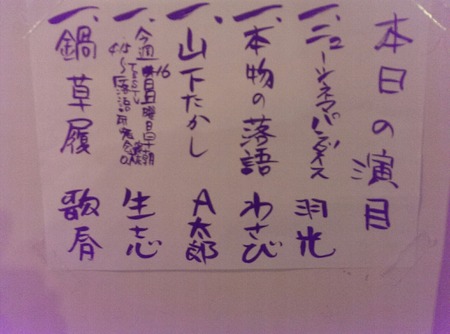 本日の演目
一、ニューシネマパラダイス 羽光
一、本物の落語 わさび
一、山下たかし A太郎
一、今週 16日日曜日 生志
4:15〜TBSTV落語研究会
一、鍋草履 歌春